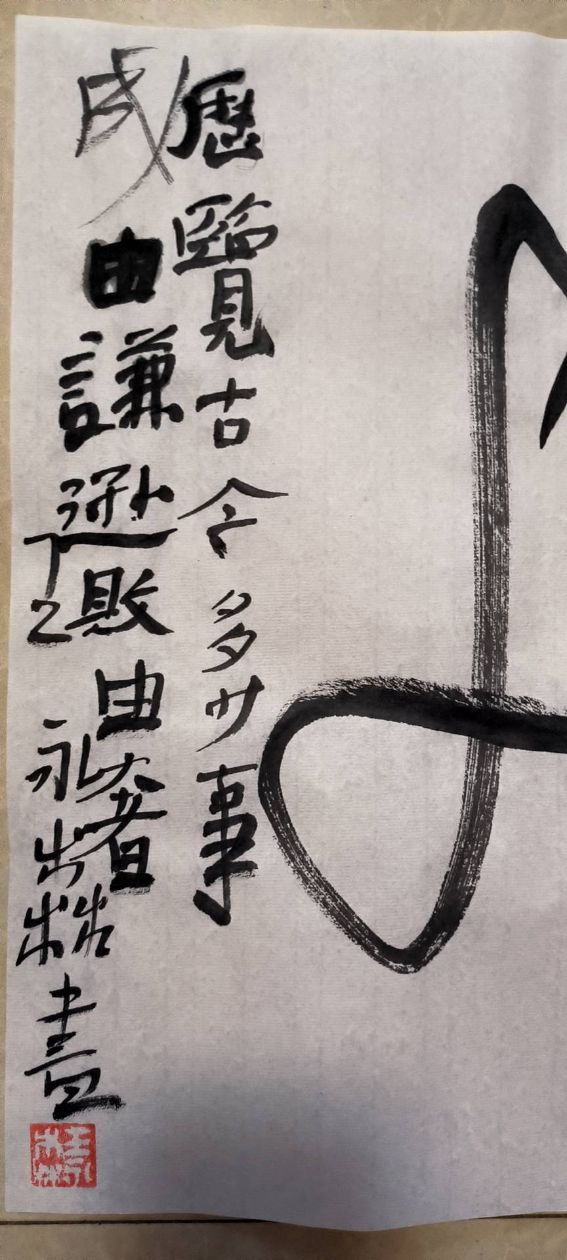 歷覽古今多少事
成由謙遜敗由奢
乙
永森畫